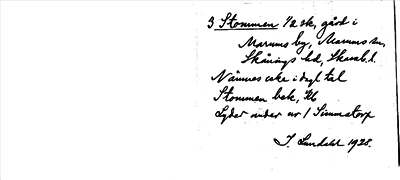 3 Stommen 1/2 sk, gård i
Marums by, Marums sn,
Skånings hd, Skarab. l.
Nämnes icke i dagl. tal
Stommen bek, Uh
Lyder under nr 1 Simmatorp
I. Lundahl 1928.